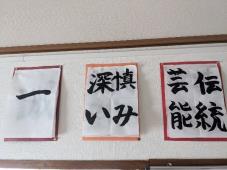 伝統
芸能
慎み
深い
一